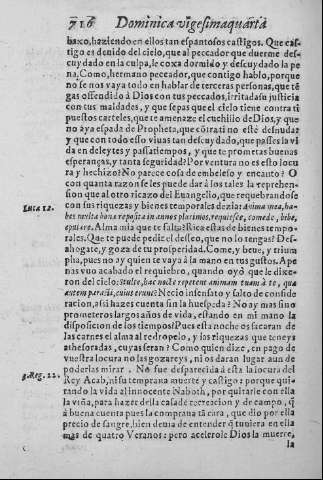 716 Dominica vigesimaquarta
baxo, haziendo en ellos tan espantosos castigos. Que cas-
tigo es denido del cielo, que al peccador que duerme des-
cuydado en la culpa, le coxa dormido y descuydado la pe
na. Como, hermano peccador, que contigo hablo, porque
no se nos vaya todo en hablar de terceras personas, que tē
gas offendido à Dios con tus peccados, irritada su justicia
con tus maldades, y que sepas que el cielo tiene contra ti
puestos carteles, que te amenaze el cuchillo de Dios, y que
no aya espada de Propheta, que cōtra ti no estè desnuda,
y que con todo esso viuas tan descuydado, que passes la vi
da en deleytes y passatiempos, y que te prometas buenas
esperanças, y tanta seguridad? Por ventura no es esto locu
ra y hechizo? No parece cosa de embeleso y encanto? O
con quanta razon se les puede dar à los tales la reprehen-
sion que al otro ricazo del Euangelio, que requebrandose
con sus riquezas y bienes temporales dezia: Anima mea, ha-
Luca 12. bes multa bona reposita in annos plurimos, requiesce, comede, bibe,
epulare. Alma mia que te falta? Rica estàs de bienes tempo-
rales. Que te puede pedir el desseo, que no lo tengas? Des-
ahogate, y goza de tu prosperidad. Come, y beue, y trium
pha, pues no ay quien te vaya à la mano en tus gustos. Ape
nas vuo acabado el requiebro, quando oyò que le dixe-
ron del cielo: Stulte, hac nocte repetent animam tuam à te, quæ
autem parasti, cuius erunt? Necio insensato y falto de conside
racion, assi hazes cuenta sin la huespeda? No ay mas sino
prometeros largos años de vida, estando en mi mano la
disposicion de los tiempos? Pues esta noche os sacaran de
las carnes el alma al redropelo, y los riquezas que teneys
athesoradas, cuyas seran? Como quien dize, en pago de
vuestra locura no las gozareys, ni os daran lugar aun de
poderlas mirar. No fue desparecida à esta la locura del
3. Reg. 22. Rey Acab, ni su temprana muerte y castigo: porque qui-
tando la vida al innocente Naboth, por quitarle con ella
la viña, para hazer della casa de recreacion y de campo, q̄
à buena cuenta pues la comprana tā cara, que dio por ella
precio de sangre, bien deuia de entender q̄ tuuiera en ella
mas de quatro Veranos: pero acelerole Dios la muerte,
la